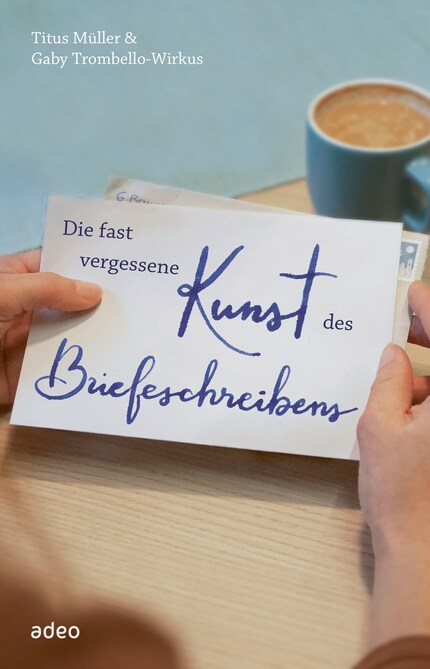 Titus Müller &
Gaby Trombello-Wirkus
Die fast
vergessene Kunst des
Briefeschreibens
adeo